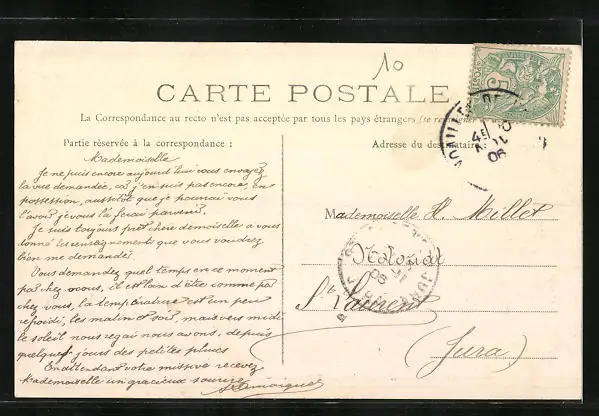 10
CARTE POSTALE
La Correspondance au recto n'est pas acceptée par tous les pays étrangers (se renseigner
Partie réservée à la correspondance :
Adresse du destinataire
Mademoiselle
Je ne puis encore aujourd'hui vous envoyez
la vue demandée, car j'en suis pas encore en
possession, aussitôt que je pourrai vous
l'avoir je vous la ferai parvenir.
Je suis toujours prêt chère demoiselle a vous
donné les renseignements que vous voudrez
bien me demandés.
Vous demandez quel temps en ce moment
pas chez vous, il est loin d'être comme pas
chez vous, la température est un peu
refroidi, les matin et soir, mais vers midi
le soleil nous regai nous avons, depuis
quelques jours des petites pluies
En attendant votre missive recevez
Mademoiselle un gracieux sourire
Mademoiselle H. Millet
St Laurent
(Jura)
JURA
06